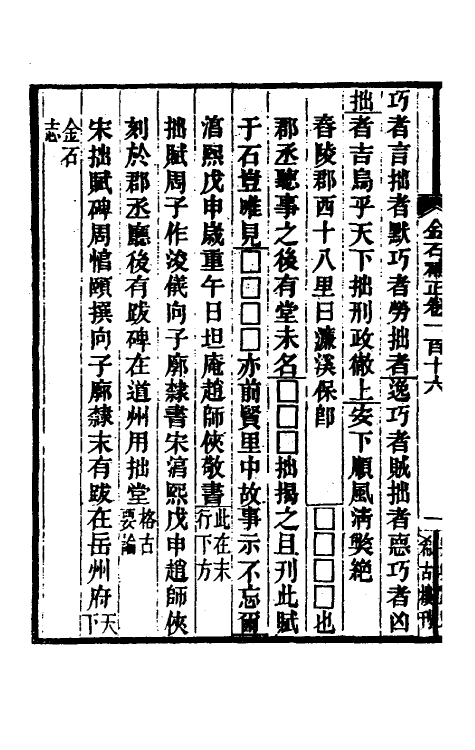 巧者言拙者默巧者勞拙者逸巧者賊拙者悳巧者凶
拙者吉烏乎天下拙刑政徹上安下順風淸獘絶
舂陵郡西十八里曰濂溪保卽□□□□也
郡丞聽事之後有堂未名□□□拙揭之且刊此賦
于石豈唯見□□□□亦前賢里中故事示不忘爾
湻熙戊申歲重午日坦庵趙師俠敬書此在末行下方
拙賦周子作浚儀向子廓隸書宋湻熙戊申趙師俠
刻於郡丞廳後有跋碑在道州用拙堂格古要論
宋拙賦碑周惇頤撰向子廓隸末有跋在岳州府天下
金石志
金石補正卷一百十六
一
希古樓刊